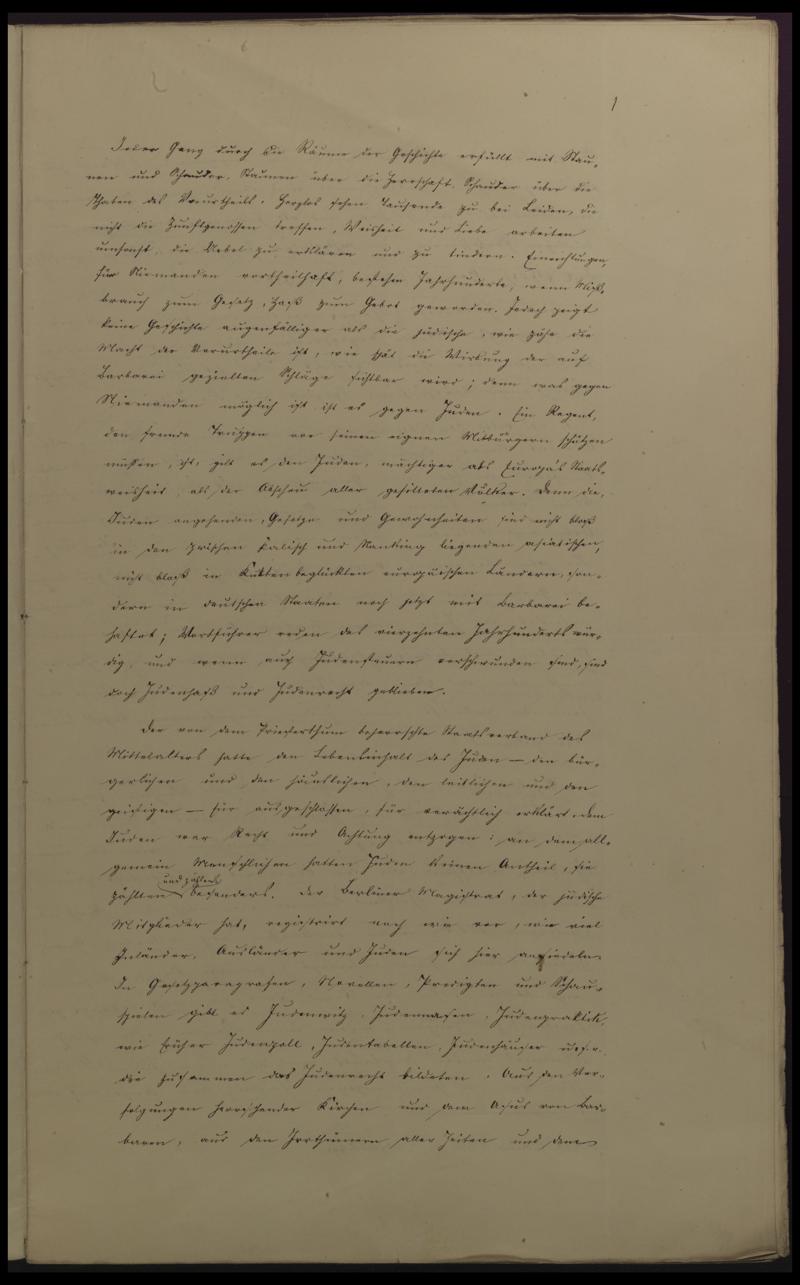 1
Jeder Gang durch die Räume der Geschichte erfüllt mit Stau-
nen und Schauder. Staunen über die Herrschaft, Schauder über die
Thaten des Vorurtheils. Herzlos sehen Tausende zu bei Leiden, die
nicht die Zunftgenossen treffen, Weisheit und Liebe arbeiten
umsonst, die Uebel zu erklären und zu lindern. Einrichtungen,
für Niemanden vortheilhaft, bestehen Jahrhunderte, wenn Miß-
brauch zum Gesetz, Haß zum Gebot geworden. Jedoch zeigt
keine Geschichte augenfälliger als die jüdische, wie zähe die
Macht der Vorurtheile ist, wie spät die Wirkung der auf
Barbarei gezielten Schläge sichtbar wird; denn was gegen
Niemanden möglich ist, ist es gegen Juden. Ein Regent,
den fremde Truppen vor seinen eignen Mitbürgern schützen
müssen, ist, gilt es den Juden, mächtiger als Europa's Staats-
weisheit, als der Abscheu aller gesitteten Völker. Denn die,
Juden angehenden, Gesetze und Gewohnheiten sind nicht bloß
in den zwischen Kalisch und Nanking liegenden asiatischen,
nicht bloß in Kutten beglückten europäischen Ländern, son-
dern in deutschen Staaten noch jetzt mit Barbarei be-
haftet; Wortführer reden des vierzehnten Jahrhunderts wür-
dig, und wenn auch Judensteuern verschwunden sind, sind
doch Judenhaß und Judenrecht geblieben.
Der von dem Priesterthum beherrschte Staatsverband des
Mittelalters hatte den Lebensinhalt des Juden — den bür-
gerlichen und den häuslichen, den leiblichen und den
geistigen — für ausgeschlossen, für verächtlich erklärt. Dem
Juden war Recht und Achtung entzogen: an dem all-
gemein Menschlichen hatten Juden keinen Antheil, sie
und zählen
zählten besonders. Der Berliner Magistrat, der jüdische
Mitglieder hat, registrirt nach wie vor, wie viel
Inländer, Ausländer und Juden sich hier ansiedeln.
In Gesetzparagrafen, Novellen, Predigten und Schau-
spielen gibt es Judenwitz, Judennasen, Judenpraktik,
wie früher Judenzoll, Judentabellen, Judenhäuser u.s.f.
die zusammen das Judenrecht bildeten. Aus den Ver-
folgungen herrschender Kirchen und dem Usus von Bar-
baren, aus den Irrthümern aller Zeiten und dem